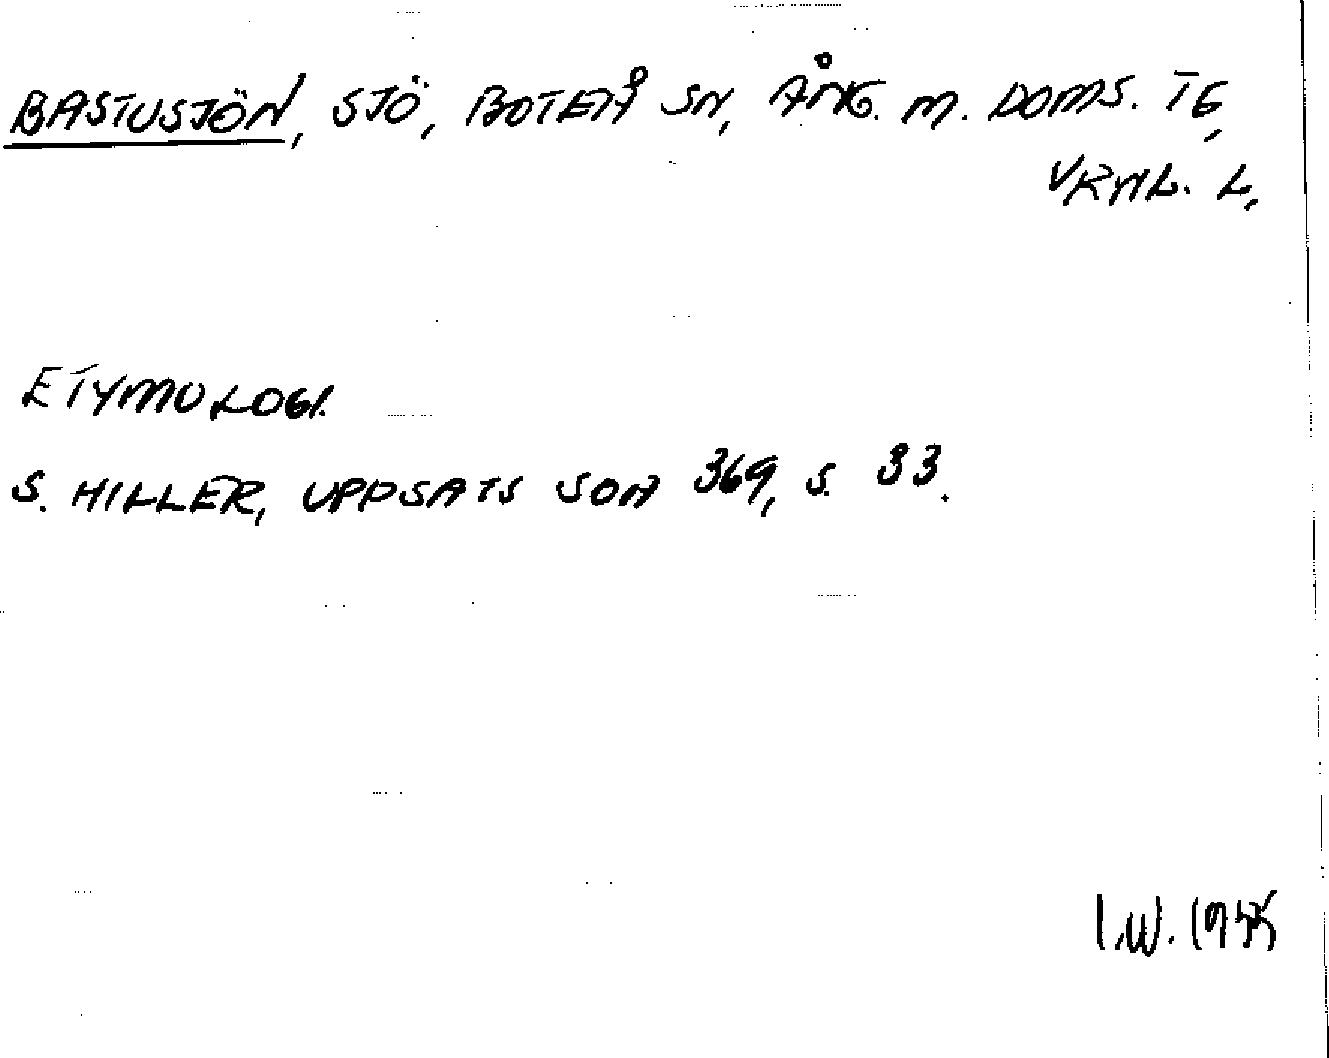 BASTUSJÖN, SJÖ, BOTEÅ SN, ÅNG. M. DOMS. TG,
VRNL. L,
ETYMOLOGI.
S. HILLER, UPPSATS SOA 369, S. 33.
I.W.